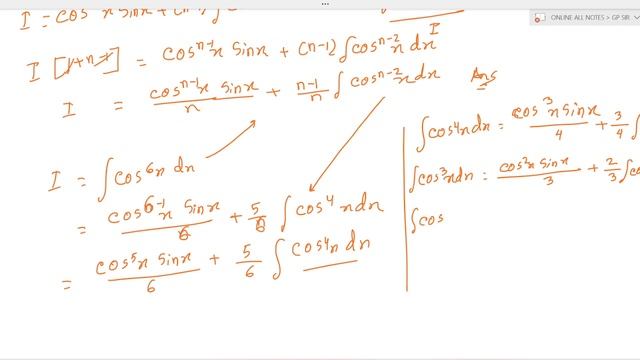 ONLINE ALL NOTES > GP SIR
I = cos x sinx + (n-
I [1+n-1] = cosⁿ⁻¹x sinx + (n-1) ∫cosⁿ⁻²x dx
I
I = cosⁿ⁻¹x sinx / n + n-1/n ∫ cosⁿ⁻²x dx Ans
I = ∫ cos⁶x dx
= cos⁶⁻¹x sinx / 6 + 5/6 ∫ cos⁴x dx
= cos⁵x sinx / 6 + 5/6 ∫ cos⁴x dx
∫cos⁴x dx = cos³x sinx / 4 + 3/4 ∫
∫cos³x dx = cos²x sinx / 3 + 2/3 ∫co
∫cos